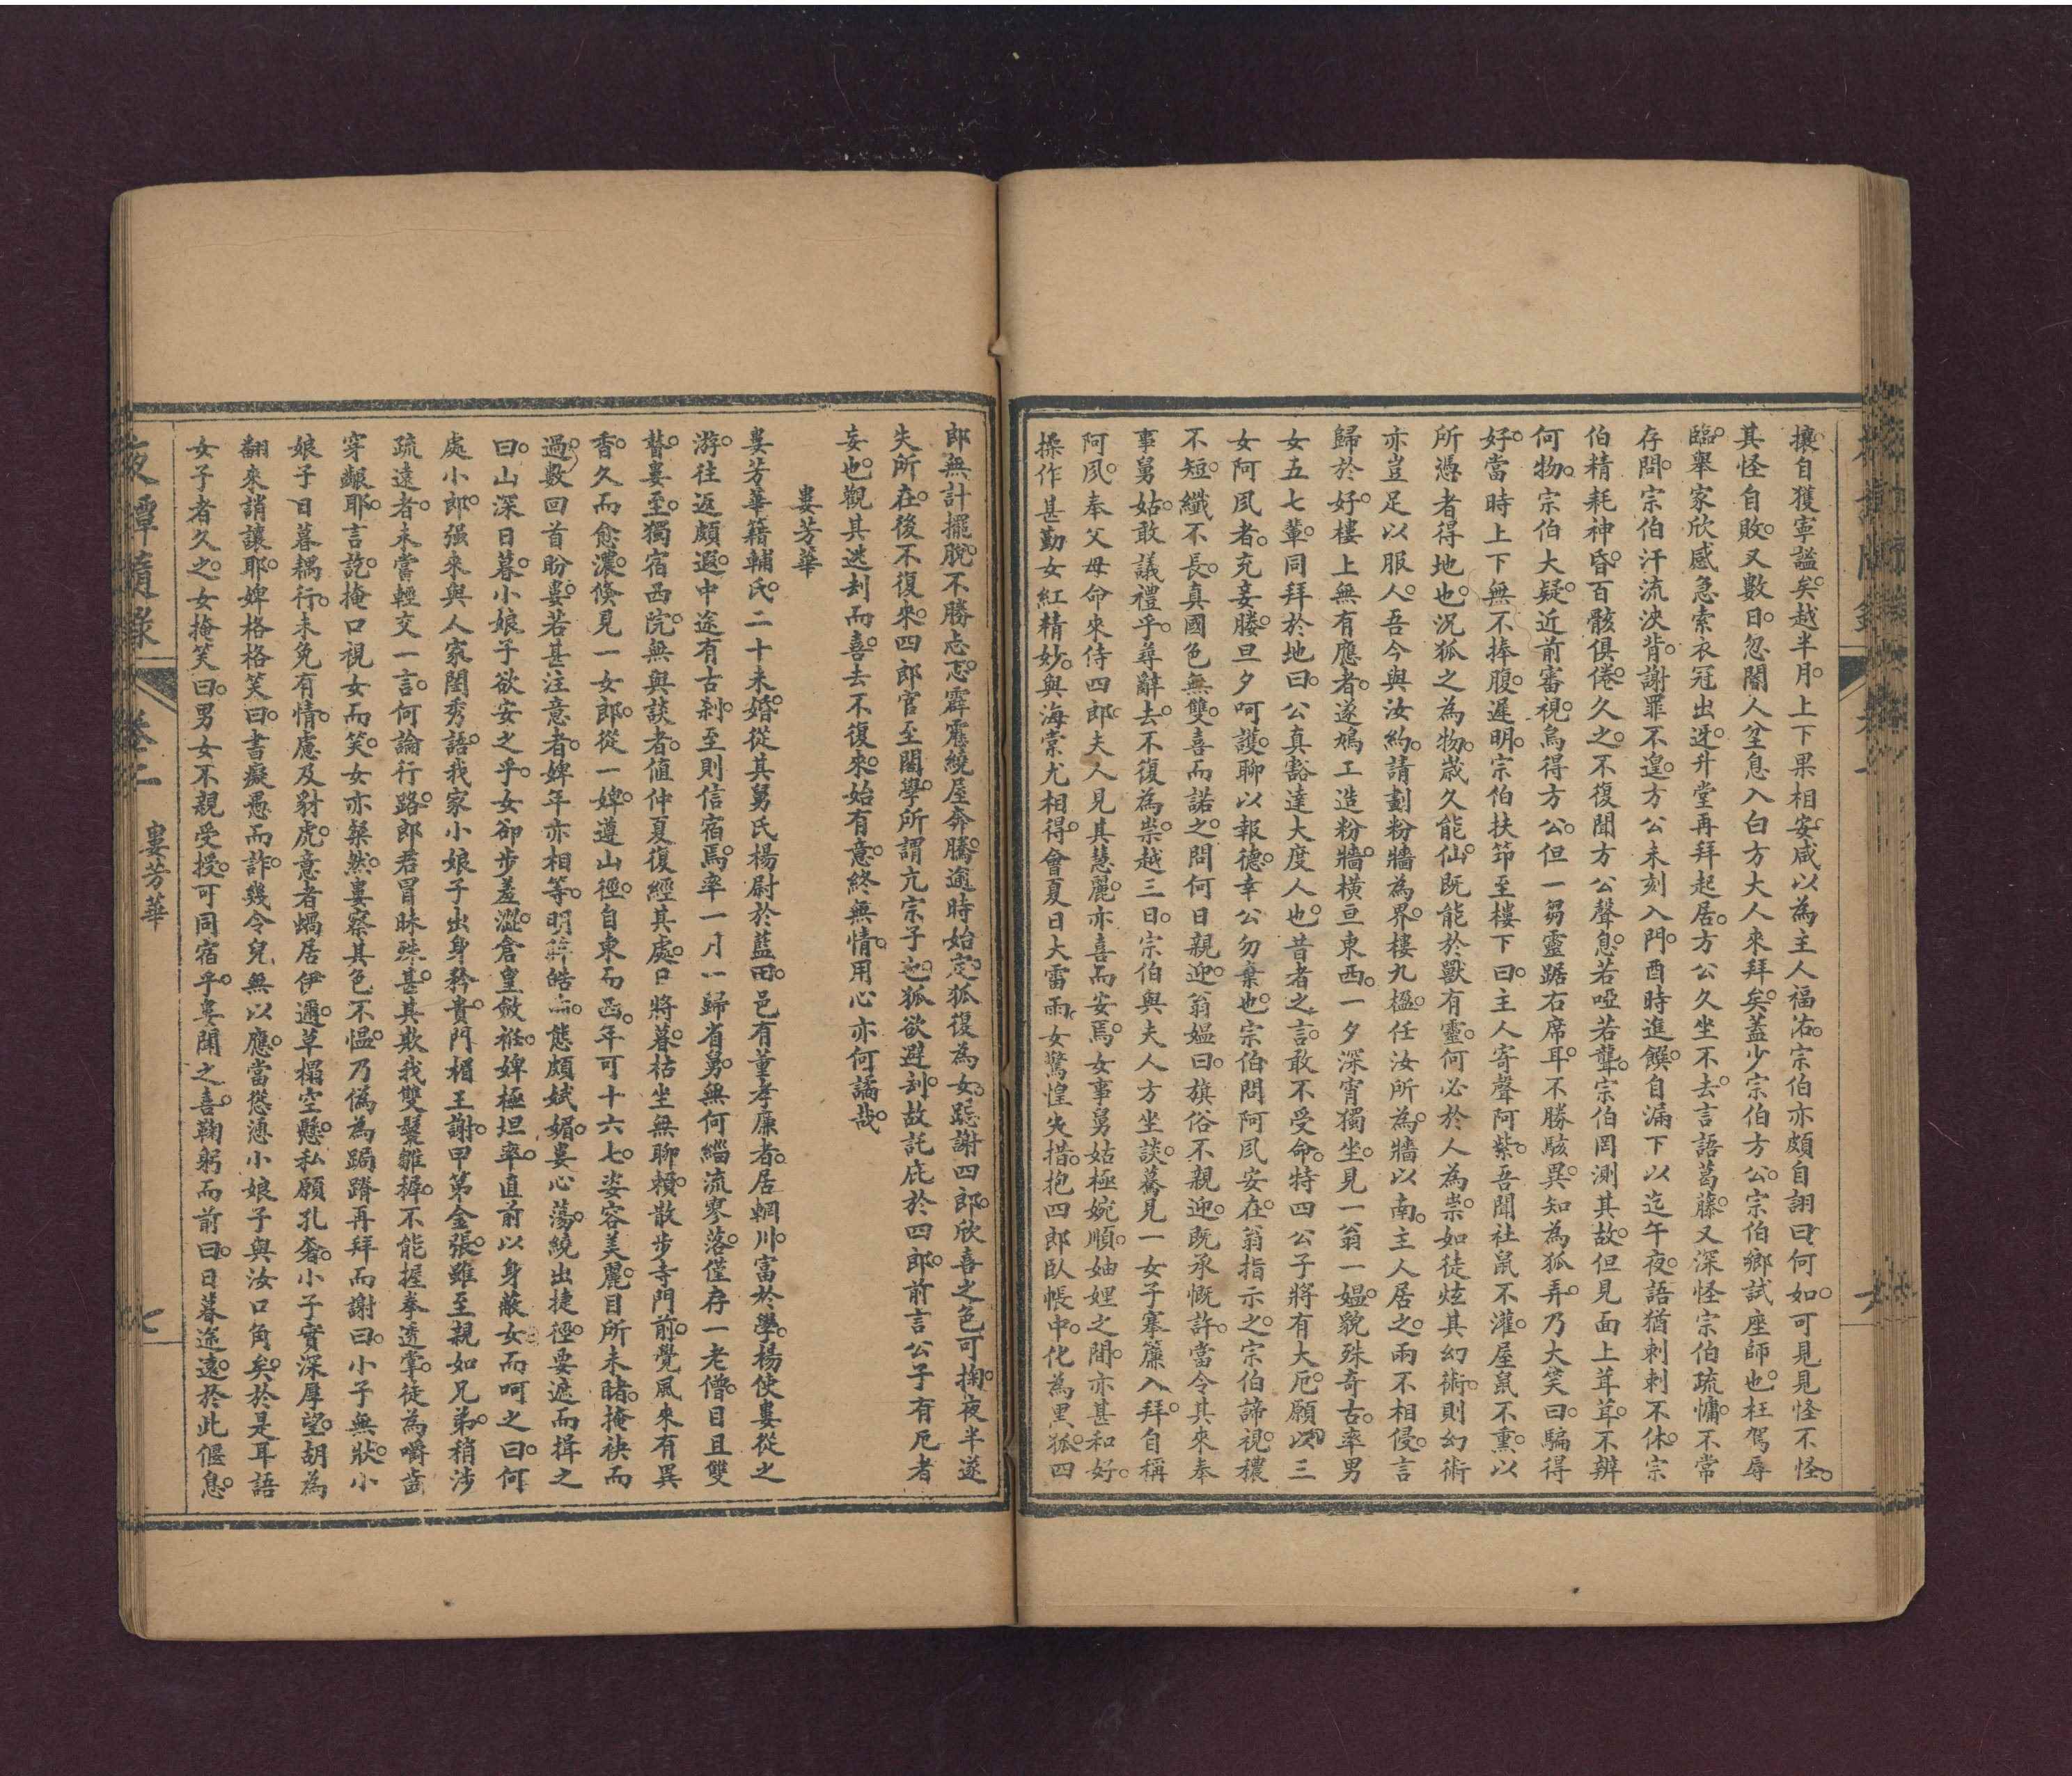 攘自獲寧謐矣。越半月。上下果相安。咸以為主人福佑。宗伯亦頗自詡曰。何如。可見見怪不怪。
其怪自敗。又數日。忽閽人坌息入白方大人來拜矣。蓋少宗伯方公。宗伯鄉試座師也。枉駕辱
臨。舉家欣感。急索衣冠出迓。升堂再拜起居。方公久坐不去。言語葛藤。又深怪宗伯疏慵。不常
存問。宗伯汗流浹背。謝罪不遑。方公未刻入門。酉時進饌。自漏下以迄午夜。語猶刺刺不休。宗
伯精耗神昏。百骸俱倦。久之。不復聞方公聲息。若啞若聾。宗伯罔測其故。但見面上茸茸。不辨
何物。宗伯大疑。近前審視。烏得方公。但一芻靈踞右席耳。不勝駭異。知為狐弄。乃大笑曰。騙得
好。當時上下無不捧腹。遲明。宗伯扶笻至樓下曰。主人寄聲阿紫。吾聞社鼠不灌。屋鼠不熏。以
所憑者得地也。況狐之為物。歲久能仙。既能於獸有靈。何必於人為祟。如徒炫其幻術。則幻術
亦豈足以服人。吾今與汝約。請劃粉牆為界。樓九楹。任汝所為。牆以南。主人居之。兩不相侵。言
歸於好。樓上無有應者。遂鳩工造粉牆。橫亘東西。一夕深宵獨坐。見一翁一媼。貌殊奇古。率男
女五七輩。同拜於地曰。公真豁達大度人也。昔者之言。敢不受命。特四公子將有大厄。願以三
女阿夙者。充妾媵。旦夕呵護。聊以報德。幸公勿棄也。宗伯問阿夙安在。翁指示之。宗伯諦視。穠
不短。纖不長。真國色無雙。喜而諾之。問何日親迎。翁媼曰。旗俗不親迎。既承慨許。當令其來奉
事舅姑。敢議禮乎。尋辭去。不復為祟。越三日。宗伯與夫人方坐談。驀見一女子搴簾入拜。自稱
阿夙。奉父母命來侍四郎。夫人見其慧麗。亦喜而安焉。女事舅姑極婉順。妯娌之間。亦甚和好。
操作甚勤。女紅精妙。與海棠尤相得。會夏日大雷雨。女驚惶失措。抱四郎臥帳中。化為黑狐。四
郎無計擺脫。不勝忐忑。霹靂繞屋奔騰。逾時始定。狐復為女。跽謝四郎。欣喜之色可掬。夜半遂
失所在。後不復來。四郎官至閣學。所謂亢宗子也。狐欲避刦。故託庇於四郎。前言公子有厄者
妄也。觀其逃刦而喜。喜去不復來。始有意。終無情。用心亦何譎哉。
婁芳華
婁芳華籍輔氏。二十未婚。從其舅氏楊尉於藍田。邑有董孝廉者。居輞川。富於學。楊使婁從之
游。往返頗遐。中途有古刹。至則信宿焉。率一月一歸省舅。無何緇流寥落。僅存一老僧。目且雙
瞽。婁至。獨宿西院。無與談者。值仲夏復經其處。日將暮。枯坐無聊賴。散步寺門前。覺風來有異
香。久而愈濃。倏見一女郎。從一婢。遵山徑。自東而西。年可十六七。姿容美麗。目所未睹。掩袂而
過。數回首盼婁。若甚注意者。婢年亦相等。明眸皓齒。態頗娬媚。婁心蕩。繞出捷徑。要遮而揖之
曰。山深日暮。小娘子欲安之乎。女卻步羞澀。倉皇斂袵。婢極坦率。直前以身蔽女而呵之曰。何
處小郎。强來與人家閨秀語。我家小娘子出身矜貴。門楣王謝。甲第金張。雖至親如兄弟。稍涉
疏遠者。未嘗輕交一言。何論行路。郎君冒昧殊甚。其欺我雙鬟雛稺。不能握拳透掌。徒為嚼齒
穿齦耶。言訖。掩口視女而笑。女亦粲然。婁察其色不慍。乃偽為跼蹐再拜而謝曰。小子無狀。小
娘子日暮耦行。未免有情。慮及豺虎。意者蝸居伊邇。草榻空懸。私願孔奢。小子實深厚望。胡為
翻來誚讓耶。婢格格笑曰。書癡愚而詐。幾令兒無以應。當慫慂小娘子與汝口角矣。於是耳語
女子者久之。女掩笑曰。男女不親受授。可同宿乎。婁聞之喜。鞠躬而前曰。日暮途遠。於此偃息。
夜譚隨錄
卷二
婁芳華
七